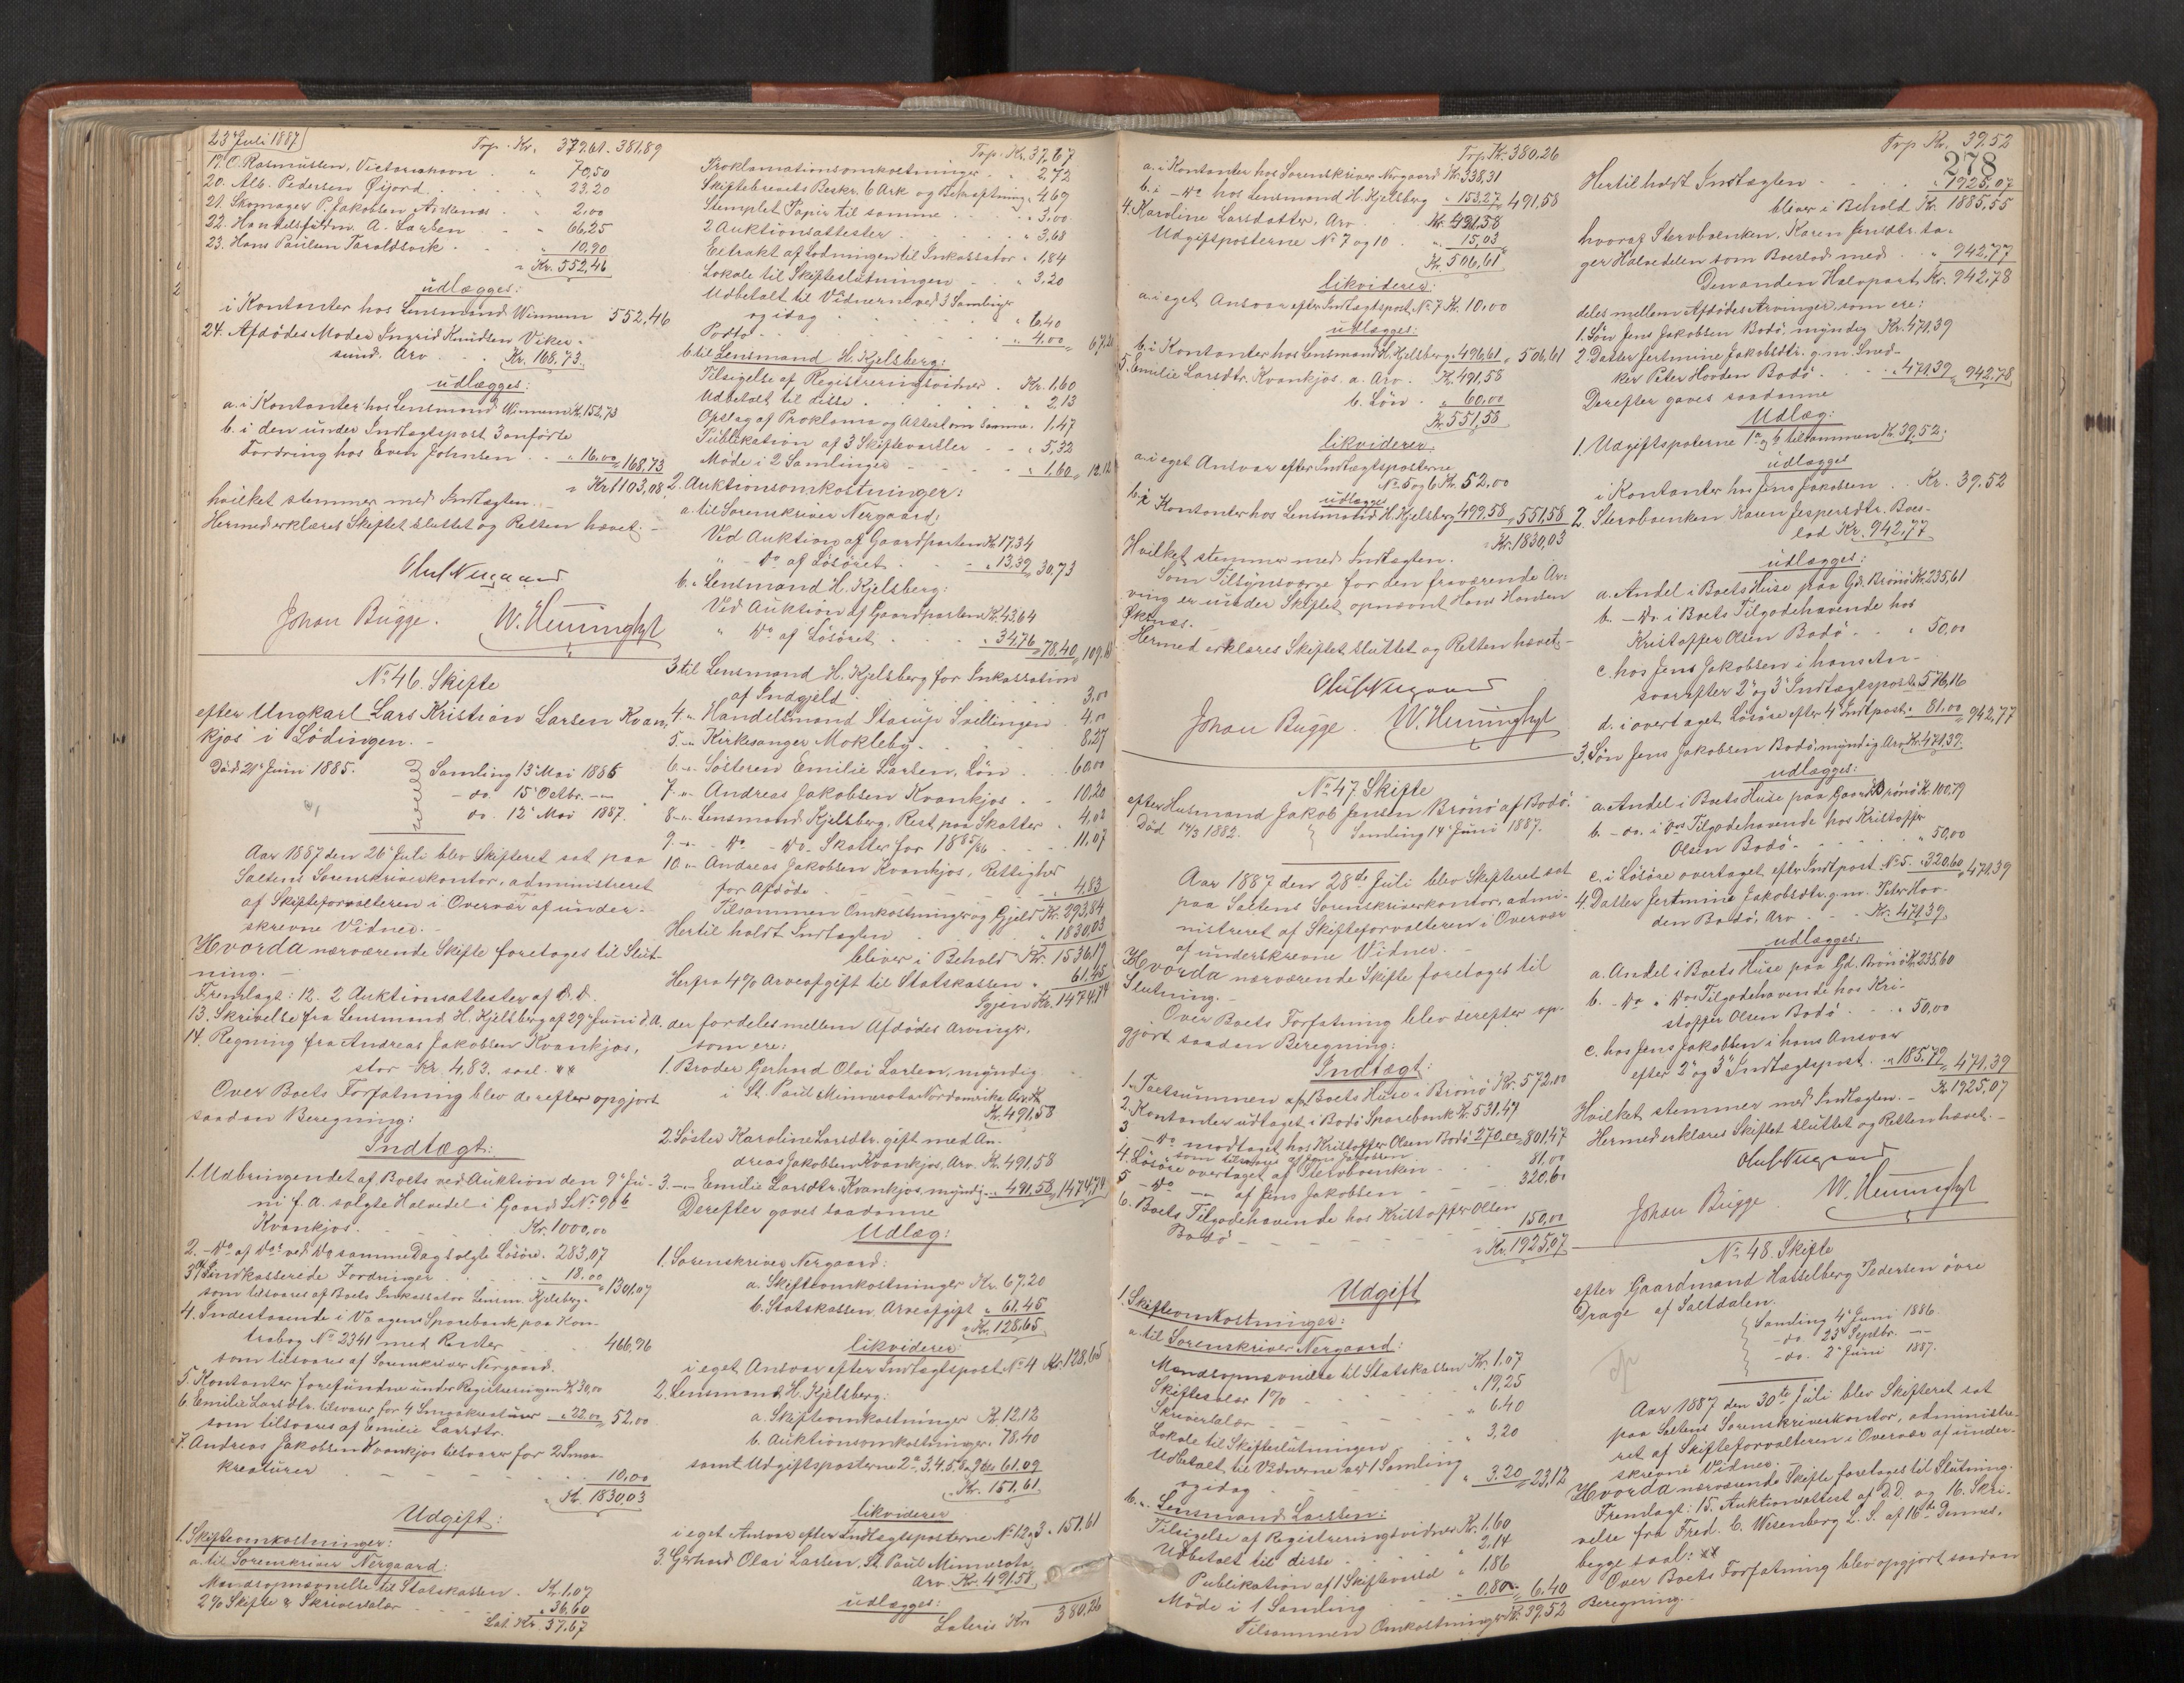 23 Juli 1887
Trp. Kr. 379.61. 381,89
19. C. Rasmussen, Victoriahavn . " 70,50
20. Alb. Pedersen Øijord . . . " 23.20
21. Skomager P. Jakobsen Ankenes . " 2,00
22. Handelsfuldm. A. Larsen . " 66,25
23. Hans Paulsen Taraldsvik . " 10,90
" Kr. 552,46
udlægges:
i Kontanter hos Lensmand Winnem 552,46
24. Afdødes Moder Ingrid Knudsen Viker-
sund. Arv . . Kr. 168.73.
udlægges:
a. i Kontanter hos Lensmand Winnem Kr. 152,73
b. i den under Indtægtspost 3 anførte
Fordring hos Even Johnsen . . " 16.00 " 168,73
" Kr. 1103,08
hvilket stemmer med Indtægten. -
Hermed erklæres Skiftet sluttet og Retten hævet. -
Oluf Nergaard
Johan Bugge. W. Hemminghyt
No 46. Skifte
efter Ungkarl Lars Kristian Larsen Kvan-
kjos i Lødingen. -
Død 21 Juni 1885.
Samling 13 Mai 1886
- do. 15 Octbr. -"-
do. 12 Mai 1887.
Aar 1887 den 26 Juli blev Skifteret sat paa
Saltens Sorenskriverkontor, administreret
af Skifteforvalteren i Overvær af under-
skrevne Vidner. -
Hvorda nærværende Skifte foretoges til Slut-
ning. -
Fremlagt: 12. 2 Auktionsattester af D. D.
13. Skrivelse fra Lensmand H. Kjelsberg af 29 Juni d. A.
14. Regning fra Andreas Jakobsen Kvankjos,
stor Kr. 4,83. saal. **
Over Boets Forfatning blev derefter opgjort
saadan Beregning:
Indtægt:
1. Udbringendet af Boets ved Auktion den 9 Ju-
ni f. A. solgte Halvedel i Gaard LNo 90 b
Kvankjos. . . Kr. 1000,00
2. - do af dos ved do samme Dag solgte Løsøre. 283,07
3. Indkasserede Fordringer . . " 18.00 " 1301,07
som tilsvares af Boets Inkassator Lensm. Kjelsberg.
4. Indestaaende i Vaagens Sparebank paa Kon-
trabog No 2341 med Renter . . 466,96
som tilsvares af Sorenskriver Nergaard.
5. Kontanter forefundne under Registreringen Kr. 30,00
6. Emilie Larsdtr. tilsvarer for 4 Smaakreaturer " 22.00 " 52,00
som tilsvares af Emilie Larsdtr.
7. Andreas Jakobsen Kvankjos tilsvarer for 2 Smaa-
kreaturer . . . 10,00
" Kr. 1830,03
Udgift:
1. Skifteomkostninger:
a. til Sorenskriver Nergaard:
Mandsopnævnelse til Statskassen . Kr. 1,07
2 % Skifte & Skriversalær . . " 36,60
Lat. Kr. 37,67
Trp. Kr. 37,67
Proklamationsomkostninger . " 2,72
Skiftebrevets Beskr. 6 Ark og Bekræftning " 4,69
Stemplet Papir til samme . . . 3,00
2 Auktionsattester . . . " 3,68
Extrakt af Lodningen til Inkassator " 1,84
Lokale til Skifteslutningen . " 3,20
Udbetalt til Vidnerne ved 3 Samlinger
og idag . . " 6,40
Porto . . " 4,00 " 67,20
b. til Lensmand H. Kjelsberg:
Tilsigelse af Registreringsvidner . Kr. 1,60
Udbetalt til disse . . " 2,13
Opslag af Proklama og Attest om samme. 1,47
Publikation af 3 Skiftevarsler . . " 5,32
Møde i 2 Samlinger . . " 1,60 " 12.12
2. Auktionsomkostninger:
a. til Sorenskriver Nergaard:
Ved Auktion af Gaardparten Kr. 17,34
" - do af Løsøret . . " 13,39 " 30,73
b. " Lensmand H. Kjelsberg:
Ved Auktion af Gaardparten Kr. 43,64
" do af Løsøret . " 34,76 " 78,40 " 109,13
3. til Lensmand H. Kjelsberg for Inkassation
af Indgjeld . . 3,00
4. " Handelsmand Starup Svellingen . 4,00
5. " Kirkesanger Mokleby . . 8,27
6. " Søsteren Emilie Larsen, Løn . 60,00
7. " Andreas Jakobsen Kvankjos . . 10,20
8. " Lensmand Kjelsberg, Rest paa Skatter . 4,02
9. " do - do - Skatter for 1885/86 . . 11,07
10. " Andreas Jakobsen Kvankjos, Rettigher
for Afdøde . . " 4,83
Tilsammen Omkostninger og Gjeld Kr. 293,84
Hertil holdt Indtægten . . " 1830,03
bliver i Behold Kr. 1536,19
Herfra 4% Arveafgift til Statskassen " 61,45
Igjen Kr. 1474,74
der fordeles mellem Afdødes Arvinger,
som ere:
1. Broder Gerhard Olai Larsen, myndig
i St. Paul Minnesota Nordamerika Arv
Kr. 491,58
2. Søster Karoline Larsdtr. gift med An-
dreas Jakobsen Kvankjos, Arv. Kr. 491,58
3. -"- Emilie Larsdtr. Kvankjos, myndig " 491,58 " 1474,74
Derefter gaves saadanne
Udlæg:
1. Sorenskriver Nergaard:
a. Skifteomkostninger Kr. 67,20
b. Statskassen Arveafgift " 61,45
" Kr. 128,65
likviderer
i eget Ansvar efter Indtægtspost No 4 Kr. 128,65
2. Lensmand H. Kjelsberg:
a. Skifteomkostninger Kr. 12,12
b. Auktionsomkostninger. 78,40
samt Udgiftsposterne 2a, 3, 4, 5, 8 og 9 61,09
Kr. 151,61
likviderer
i eget Ansvar efter Indtægtsposterne No 1, 2 og 3 . 151,61
3. Gerhard Olai Larsen, St. Paul Minnesota
Arv. Kr. 491,58
udlægges:
Lateris Kr. 380,26
Trp. Kr. 380.26
a. i Kontanter hos Sorenskriver Nergaard Kr. 338,31
b. i - do hos Lensmand H. Kjelsberg " 153,27 " 491,58
4. Karoline Larsdatter, Arv . Kr. 491,58
Udgiftsposterne No 7 og 10 . " 15,03
Kr. 506,61
likviderer:
a. i eget Ansvar efter Indtægtspost No 7 Kr. 10,00
udlægges:
b. i Kontanter hos Lensmand H. Kjelsberg " 496,61 " 506,61
5. Emilie Larsdtr. Kvankjos. a. Arv. Kr. 491,58
b. Løn . " 60,00
Kr. 551,58
likviderer:
a. i eget Ansvar efter Indtægtsposterne
No. 5 og 6 Kr. 52,00
udlægges
b. i Kontanter hos Lensmand H. Kjelsberg 499,58 " 551,58
" Kr. 1830,03
Hvilket stemmer med Indtægten.
Som Tilsynsværge for den fraværende Ar-
ving er under Skiftet opnævnt Hans Hansen
Øksnes.
Hermed erklæres Skiftet sluttet og Retten hævet. -
Oluf Nergaard
Johan Bugge. W. Hemminghyt
No. 47. Skifte
efter Husmand Jakob Jensen Brønø af Bodø.
Død 14/3 1882.
Samling 14 Juni 1887.
Aar 1887 den 28de Juli blev Skifteret sat
paa Saltens Sorenskriverkontor, admi-
nistreret af Skifteforvalteren i Overvær
af underskrevne Vidner. -
Hvorda nærværende Skifte foretoges til
Slutning. -
Over Boets Forfatning blev derefter op-
gjort saadan Beregning:
Indtægt:
1. Taxtsummen af Boets Huse i Brønø Kr. 572,00
2. Kontanter udtaget i Bodø Sparebank Kr. 531,47
3. - do modtaget hos Kristoffer Olsen Bodø 270,00 " 801,47
som tilsvares af Jens Jakobsen
4. Løsøre overtaget af Stervboenken . . 81,00
5. - do -"- af Jens Jakobsen . . 320,60
6. Boets Tilgodehavende hos Kristoffer Olsen
Bodø . . . 150,00
" Kr. 1925,07
Udgift
1. Skifteomkostninger:
a. til Sorenskriver Nergaard:
Mandsopnævnelse til Statskassen Kr. 1,07
Skiftesalær 1% . . " 19,25
Skriversalær . . " 6,40
Lokale til Skifteslutningen . " 3,20
Udbetalt til Vidnerne ved 1 Samling
og idag . . " 3,20 " 33,12
b. " Lensmand Larssen:
Tilsigelse af Registreringsvidner Kr. 1,60
Udbetalt til disse . . " 2,14
Publikation af 1 Skiftevarsel " 1,86
Møde i 1 Samling . . " 0,80 " 6,40
Tilsammen Omkostninger Kr. 39,52
Trp. Kr. 39,52
278
Hertil holdt Indtægten . . . " 1925,07
bliver i Behold Kr. 1885,55
hvoraf Stervboenken, Karen Jensdtr. ta-
ger Halvdelen som Boeslod med . . " 942,77
Den anden Halvpart Kr. 942,78
deles mellem Afdødes Arvinger, som ere:
1. Søn Jens Jakobsen Bodø, myndig Kr. 471,39
2. Datter Jertmine Jakobsdtr. g. m. Sned-
ker Peter Hovden Bodø . . " 471,39 " 942,78
Derefter gaves saadanne
Udlæg:
1. Udgiftsposterne 1a og b tilsammen Kr. 39,52.
udlægges
i Kontanter hos Jens Jakobsen . . Kr. 39.52
2. Stervboenken Karen Jespersdtr. Boes-
lod Kr. 942,77
udlægges:
a. Andel i Boets Huse paa Gd. Brønø Kr. 235,61
b. - do i Boets Tilgodehavende hos
Kristoffer Olsen Bodø . . " 50,00
c. hos Jens Jakobsen i hans An-
svar efter 2 og 3 Indtægtspost " 576,16
d. i overtaget Løsøre efter 4 Indtpost. " 81,00 " 942,77
3. Søn Jens Jakobsen Bodø, myndig, Arv Kr. 471,39.
udlægges:
a. Andel i Boets Huse paa Gaard Brønø Kr. 100,79
b. - do. i dos Tilgodehavende hos Kristoffer
Olsen Bodø . . . " 50,00
c. i Løsøre overtaget efter Indtpost. No 5. " 320,60 " 471,39
4. Datter Jertmine Jakobsdtr. g. m. Peter Hov-
den Bodø, Arv . . Kr. 471,39
udlægges:
a. Andel i Boets Huse paa Gd. Brønø Kr. 235,60
b. - do " dos Tilgodehavende hos Kri-
stoffer Olsen Bodø . . " 50,00
c. hos Jens Jakobsen i hans Ansvar
efter 2 og 3 Indtægtspost . " 185,79 " 471,39
Kr. 1925,07
Hvilket stemmer med Indtægten. -
Hermed erklæres Skiftet sluttet og Retten hævet. -
Oluf Nergaard
Johan Bugge W. Hemminghyt
No 48. Skifte
efter Gaardmand Hasselberg Pedersen øvre
Drage af Saltdalen.
Samling 4 Juni 1886.
- do. 23 Septbr. -"-
- do. 2 Juni 1887.
Aar 1887 den 30te Juli blev Skifteret sat
paa Saltens Sorenskriverkontor, administre-
ret af Skifteforvalteren i Overvær af under-
skrevne Vidner.
Hvorda nærværende Skifte foretoges til Slutning.
Fremlagt: 15. Auktionsattest af D. D. og 16. Skri-
velse fra Fred. C. Wesenberg L. S. af 16de Dennes,
begge saal: **
Over Boets Forfatning blev opgjort saadan
Beregning.